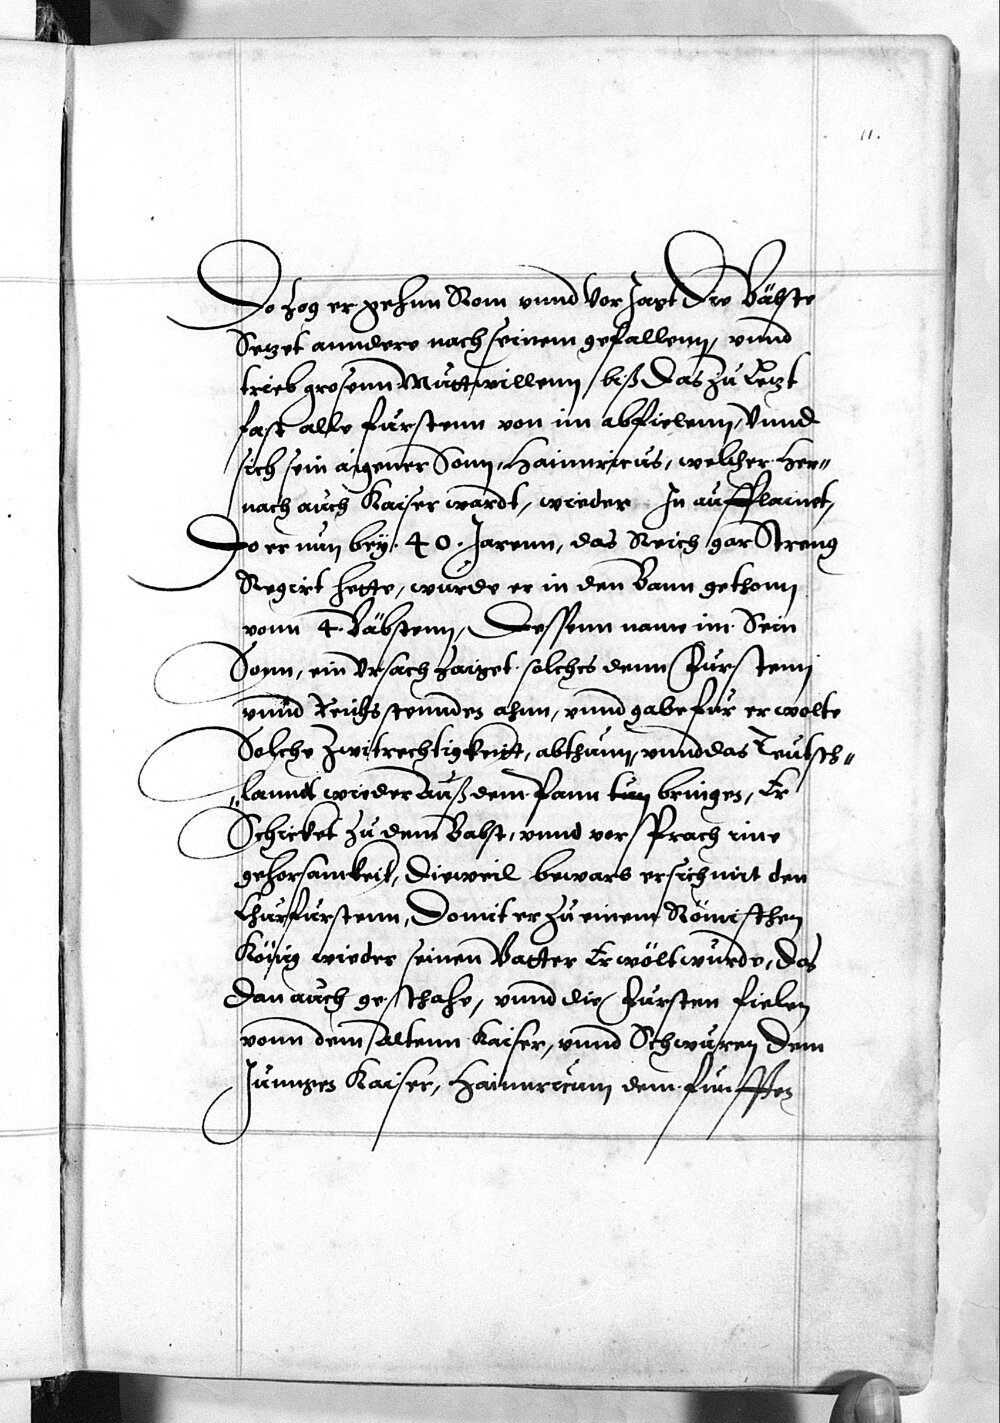 11.
Do zog er gehnn Rom vnnd vor Jagt Die Bäbste
Setzet anndere nach seinem gefallenn, vnnd
trieb grosenn Muttwillenn biß Das zu Letzt
fast alle fürstenn von im abfielenn, Vnnd
sich sein aigener Sonn, Hainnricus, welcher Her„
nach auch Kaiser wardt, wieder In aufflainet,
Do er nun bey 40. Jarenn, das Reich gar Streng
Regirt hette, wurde er in den Bann gethonn
vonn 4. Bäbstenn, Dessenn name im Sein
Sonn, ein Vrsach Zaiget solches denn Fürstenn
vnnd Reichsstennden ahnn, vnnd gabe für er wolte
Solche Zwitrechtigkeitt, abthaun, vnnd das Teutsch„
„lanndt wieder Auß dem Pann bringen, Er
Schicket zu dem Babst, vnnd vor Sprach ime
gehorsamkeit, Dieweil bewarb er sich mit den
Churfürstenn, Domit er zu einem Römischen
König wieder seinen Vatter Erwölt wurde, Das
Dan auch geschahe, vnnd die Fürsten fielen
vonn dem Altenn Kaiser, vnnd Schwuren Dem
Jungen Kaiser, Hainnricum dem fünfften